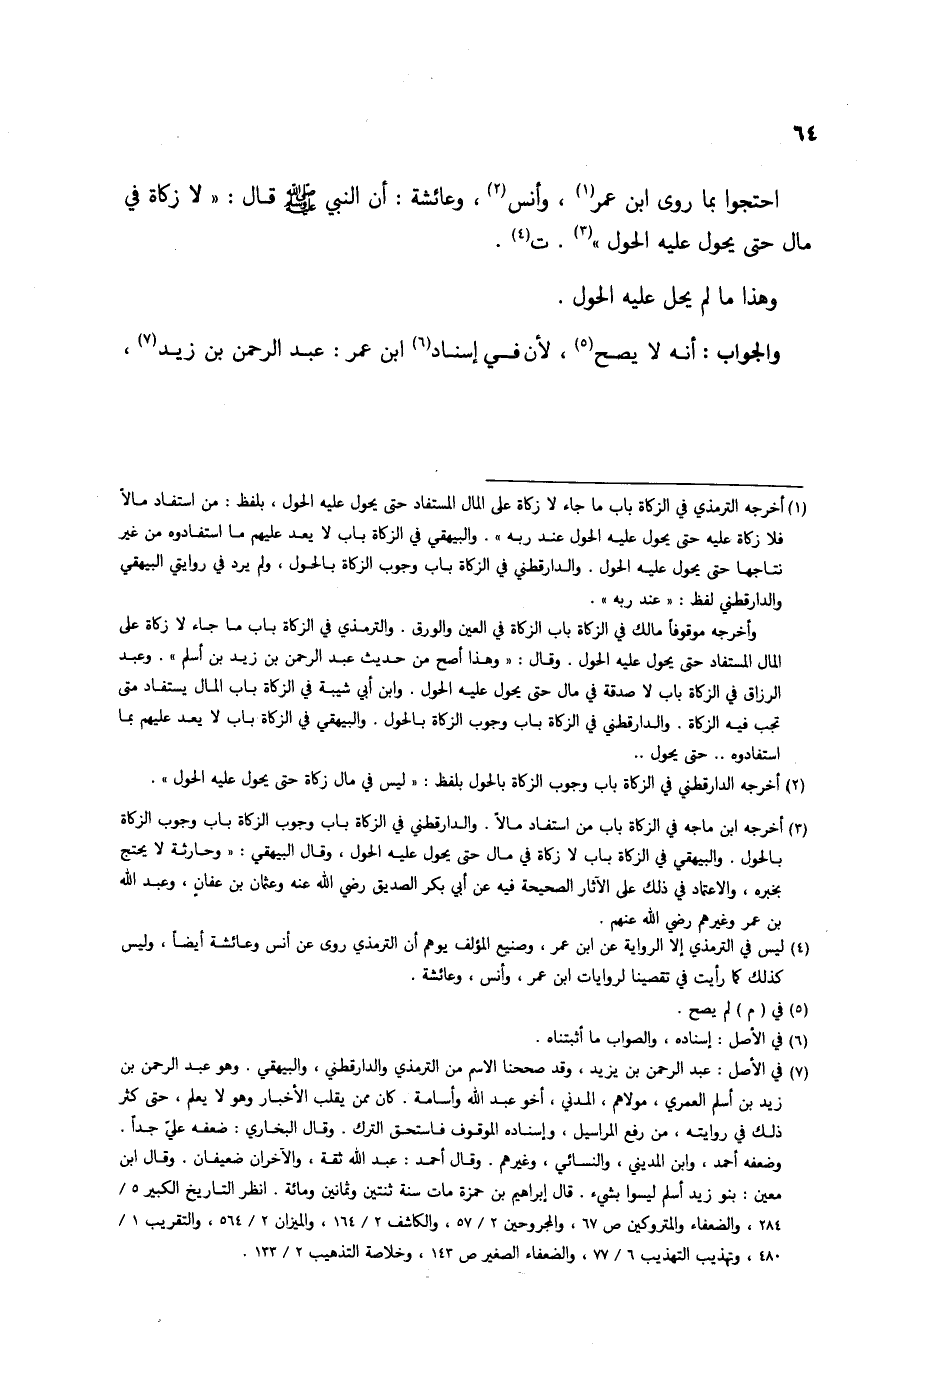 ٦٤
احتجوا بما روى ابن عمر(١) ، وأنس(٢) ، وعائشة : أن النبي ﷺ قال : « لا زكاة في
مال حتى يحول عليه الحول »(٣) . ت(٤) .
وهذا ما لم يحل عليه الحول .
والجواب : أنه لا يصح(٥) ، لأن في إسناد(٦) ابن عمر : عبد الرحمن بن زيد(٧) ،
(١) أخرجه الترمذي في الزكاة باب ما جاء لا زكاة على المال المستفاد حتى يحول عليه الحول ، بلفظ : من استفاد مالاً
فلا زكاة عليه حتى يحول عليه الحول عند ربه » . والبيهقي في الزكاة باب لا يعد عليهم ما استفادوه من غير
نتاجها حتى يحول عليه الحول . والدارقطني في الزكاة باب وجوب الزكاة بالحول ، ولم يرد في روايتي البيهقي
والدارقطني لفظ : « عند ربه » .
وأخرجه موقوفاً مالك في الزكاة باب الزكاة في العين والورق . والترمذي في الزكاة باب ما جاء لا زكاة على
المال المستفاد حتى يحول عليه الحول . وقال : « وهذا أصح من حديث عبد الرحمن بن زيد بن أسلم » . وعبد
الرزاق في الزكاة باب لا صدقة في مال حتى يحول عليه الحول . وابن أبي شيبة في الزكاة باب المال يستفاد متى
تجب فيه الزكاة . والدارقطني في الزكاة باب وجوب الزكاة بالحول . والبيهقي في الزكاة باب لا يعد عليهم بما
استفادوه .. حتى يحول ..
(٢) أخرجه الدارقطني في الزكاة باب وجوب الزكاة بالحول بلفظ : « ليس في مال زكاة حتى يحول عليه الحول » .
(٣) أخرجه ابن ماجه في الزكاة باب من استفاد مالاً . والدارقطني في الزكاة باب وجوب الزكاة باب وجوب الزكاة
بالحول . والبيهقي في الزكاة باب لا زكاة في مال حتى يحول عليه الحول ، وقال البيهقي : « وحارثة لا يحتج
بخبره ، والاعتماد في ذلك على الآثار الصحيحة فيه عن أبي بكر الصديق رضي الله عنه وعثمان بن عفان ، وعبد الله
بن عمر وغيرهم رضي الله عنهم .
(٤) ليس في الترمذي إلا الرواية عن ابن عمر ، وصنيع المؤلف يوهم أن الترمذي روى عن أنس وعائشة أيضاً ، وليس
كذلك كما رأيت في تقصينا لروايات ابن عمر ، وأنس ، وعائشة .
(٥) في ( م ) لم يصح .
(٦) في الأصل : إسناده ، والصواب ما أثبتناه .
(٧) في الأصل : عبد الرحمن بن يزيد ، وقد صححنا الاسم من الترمذي والدارقطني ، والبيهقي . وهو عبد الرحمن بن
زيد بن أسلم العمري ، مولاهم ، المدني ، أخو عبد الله وأسامة . كان ممن يقلب الأخبار وهو لا يعلم ، حتى كثر
ذلك في روايته ، من رفع المراسيل ، وإسناده الموقوف فاستحق الترك . وقال البخاري : ضعفه عليّ جداً .
وضعفه أحمد ، وابن المديني ، والنسائي ، وغيرهم . وقال أحمد : عبد الله ثقة ، والآخران ضعيفان . وقال ابن
معين : بنو زيد أسلم ليسوا بشيء . قال إبراهيم بن حمزة مات سنة ثنتين وثمانين ومائة . انظر التاريخ الكبير ٥ /
٢٨٤ ، والضعفاء والمتروكين ص ٦٧ ، والمجروحين ٢ / ٥٧ ، والكاشف ٢ / ١٦٤ ، والميزان ٢ / ٥٦٤ ، والتقريب ١ /
٤٨٠ ، وتهذيب التهذيب ٦ / ٧٧ ، والضعفاء الصغير ص ١٤٣ ، وخلاصة التذهيب ٢ / ١٣٣ .